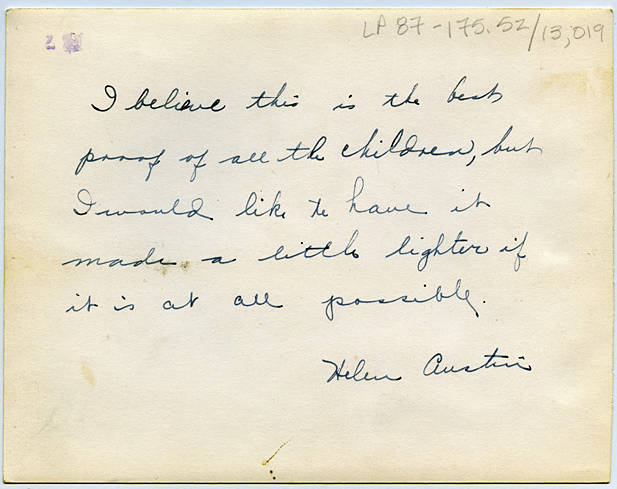 LP 87-175.52/13,019
I believe this is the best
proof of all the children, but
I would like to have it
made a little lighter if
it is at all possible.
Helen Austin